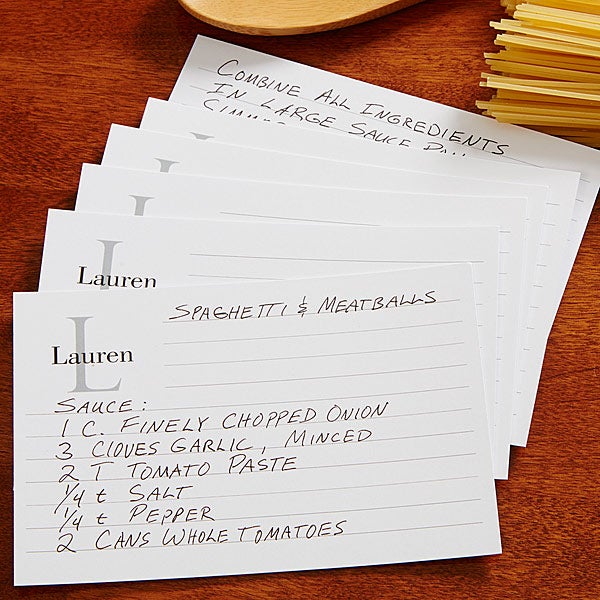 COMBINE ALL INGREDIENTS
IN LARGE SAUCE
L
Lauren
L
Lauren
SPAGHETTI & MEATBALLS
SAUCE:
1 C. FINELY CHOPPED ONION
3 CLOVES GARLIC, MINCED
2 T TOMATO PASTE
1/4 t SALT
1/4 t PEPPER
2 CANS WHOLE TOMATOES